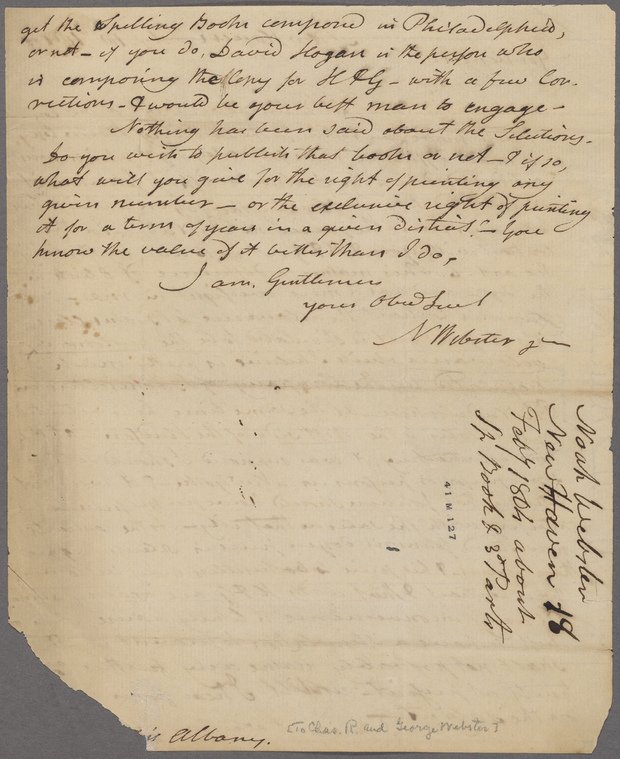 get the Spelling Book composed in Philadelphia,
or not - if you do, David Hogan is the person who
is composing the Copy for H & G - with a few Cor-
rections - & would be your best man to engage -
Nothing has been said about the Selections.
Do you wish to publish that book or not - & if so,
what will you give for the right of printing any
given number - or the exclusive right of printing
it for a term of years in a given district - You
know the value of it better than I do,
I am, Gentlemen
yours Obed Servt
N Webster Jun
Noah Webster
New Haven 18
Feby 1804 about
Sp. Book & 3d Parts
41M127
Albany.
[To Chas. R. and George Webster]